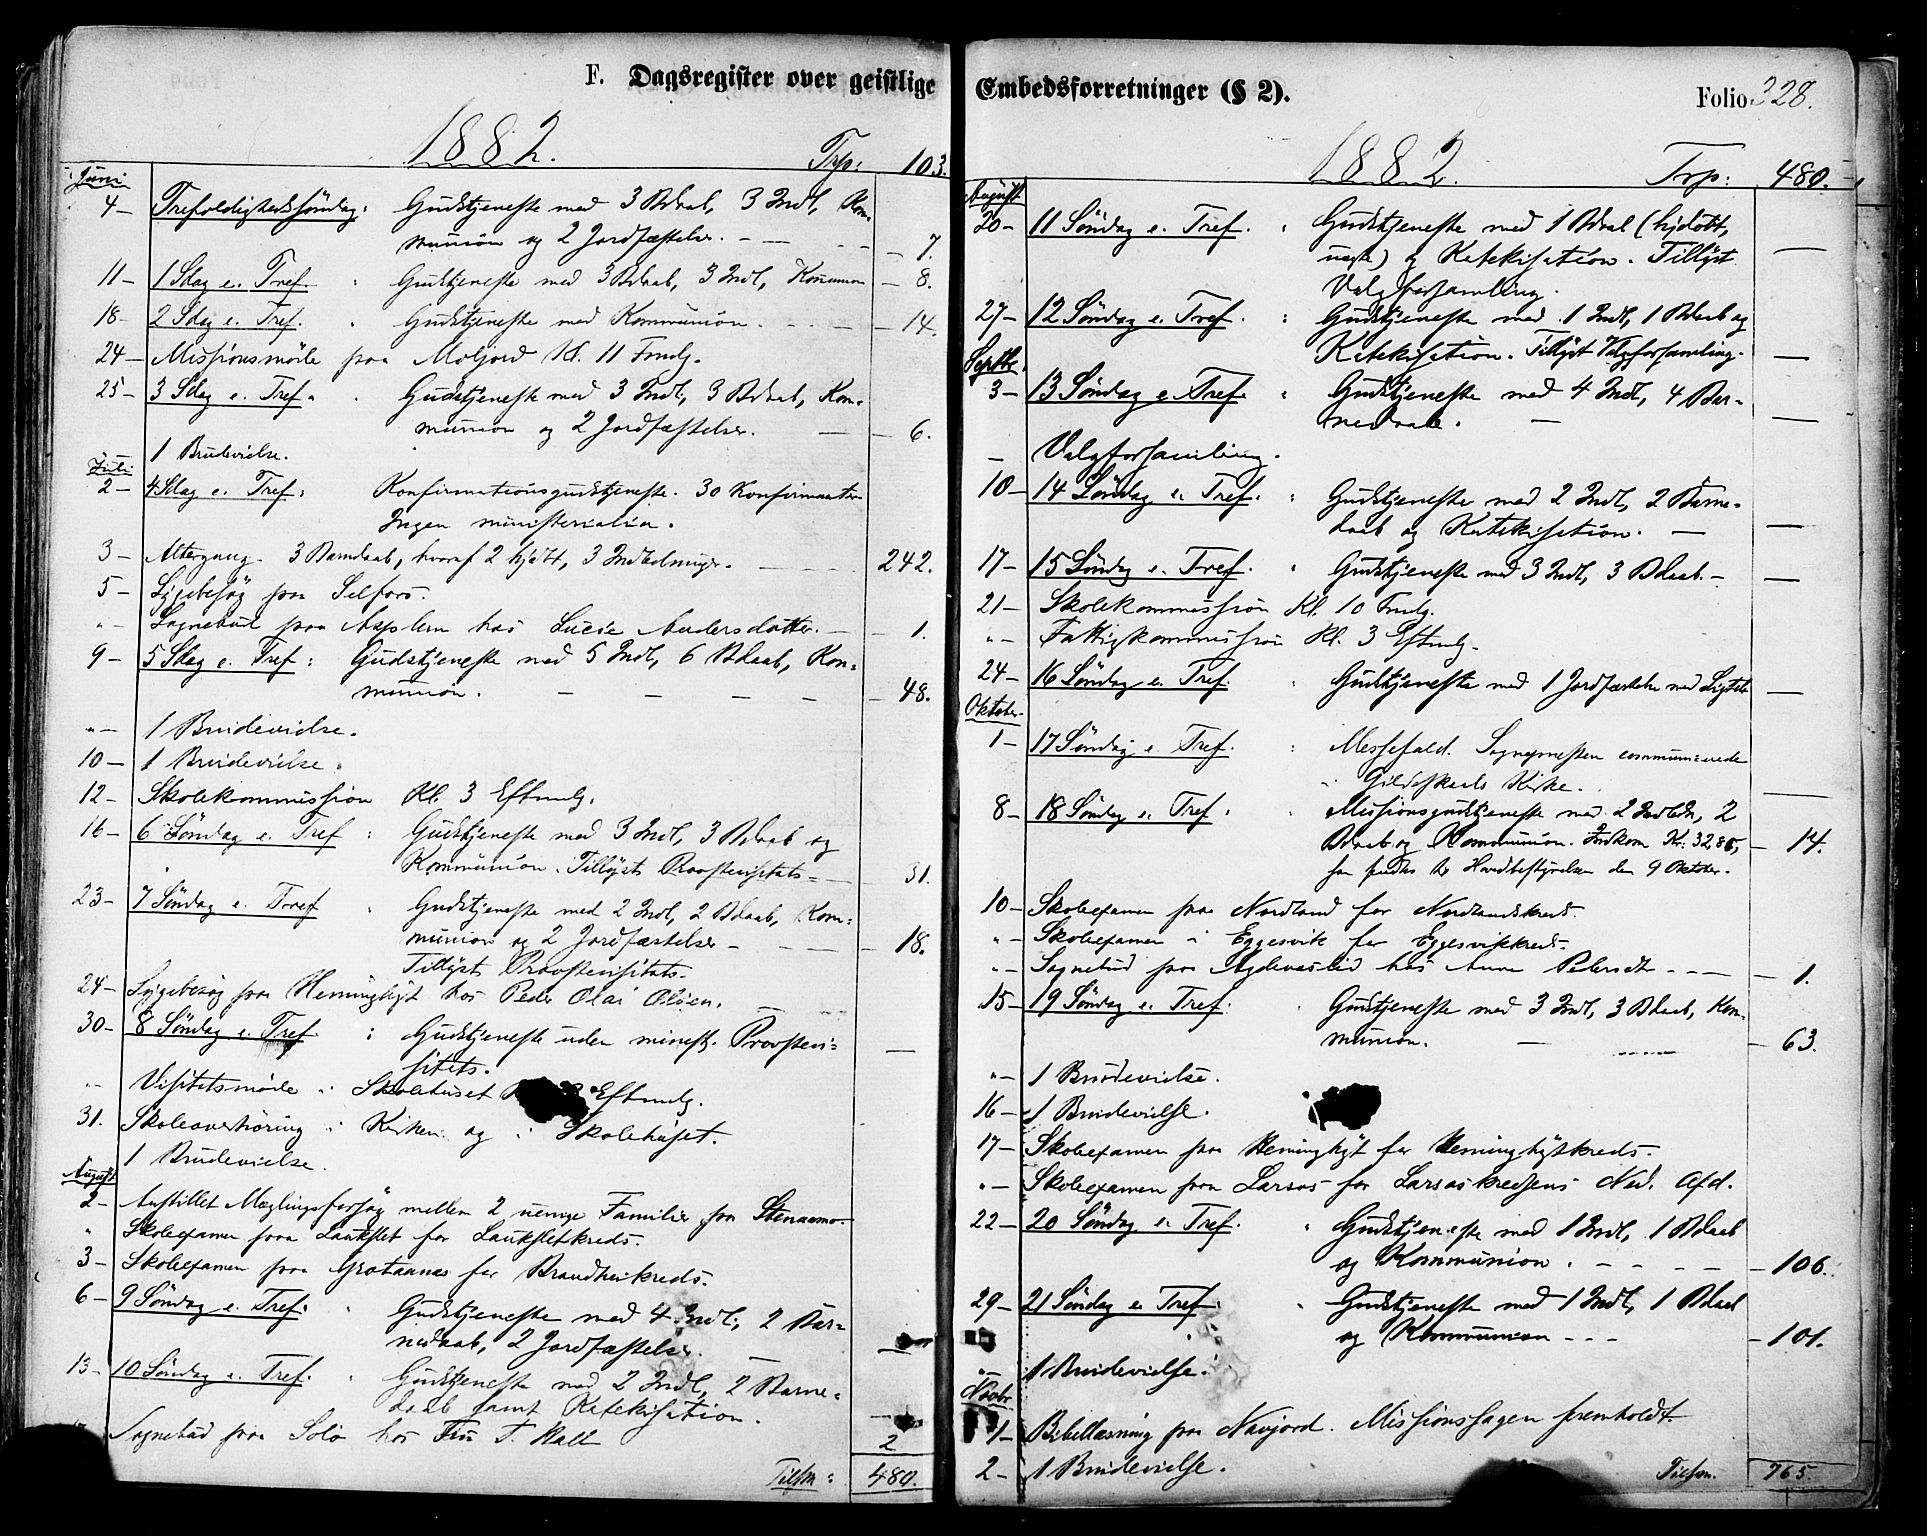 F. Dagsregister over geistlige
1882. Trp: 103.
Juni
4- Trefoldighedssöndag: Gudstjeneste med 3 Bdaab, 3 Indl, Kom-
munion og 2 Jordfæstelser. - 7.
11- 1 Sdag e. Tref. Gudstjeneste med 3 Bdaab, 3 Indl, Kommunion - 8.
18- 2 Sdag e. Tref. Gudstjeneste med Kommunion. - 14.
24- Missionsmöde paa Moljord Kl. 11 Fmdg.
25- 3 Sdag e. Tref. Gudstjeneste med 3 Indl, 3 Bdaab, Kom-
munion og 2 Jordfæstelser. - 6.
1 Brudevielse.
Juli
2- 4 Sdag e. Tref: Konfirmationsgudstjeneste. 30 Konfirmanter
Ingen ministerialia.
3- Altergang. 3 Barndaab, hvoraf 2 hjdt, 3 Indledninger. 242.
5- Sygebesög paa Selfors.
"- Sognebud paa hos Lucie Andersdatter. - 1.
9- 5 Sdag e. Tref: Gudstjeneste med 5 Indl, 6 Bdaab, Kom-
munion. - 48.
"- 1 Brudevielse.
10- 1 Brudevielse.
12- Skolekommission Kl. 3 Eftmdg.
16- 6 Söndag e. Tref: Gudstjeneste med 3 Indl, 3 Bdaab og
Kommunion. Tillyst Provstevisitats - 31.
23- 7 Söndag e. Tref Gudstjeneste med 2 Indl, 2 Bdaab, Kom-
munion og 2 Jordfæstelser - 18.
Tillyst Provstevisitats.
24- Sygebesög paa hos Peder Olai Olsen.
30- 8 Söndag e. Tref: Gudstjeneste uden minist. Provstevi-
sitats.
"- Visitatsmöde i Skolehuset Eftmdg.
31. Skoleoverhöring i Kirken og i Skolehuset.
1 Brudevielse.
August
2- Anstillet Mæglingsforsög mellem 2 uenige Familier fra
" Skoleexamen paa Laukslet for Lauksletkreds.
3- Skoleexamen paa for
6- 9 Söndag e. Tref: Gudstjeneste med 4 Indl, 2 Bar-
nedaab, 2 Jordfæstelser.
13- 10 Söndag e. Tref. Gudstjeneste med 2 Indl, 2 Barne-
daab samt Katekisation.
Sognebud paa hos 2
Tilsm: 480.
Embedsforretninger (§ 2). Folio 328.
1882. Trp: 480.
August
20- 11 Söndag e. Tref. Gudstjeneste med 1 Bdaab (hjdöbt,
uægte) og Katekisation. Tillyst
Valgforsamling.
27- 12 Söndag e. Tref. Gudstjeneste med 1 Indl, 1 Bdaab og
Katekisation. Tillyst Valgforsamling.
Septbr.
3- 13 Söndag e. Tref. Gudstjeneste med 4 Indl, 4 Bar-
nedaab.
- Valgforsamling.
10- 14 Söndag e. Tref. Gudstjeneste med 2 Indl, 2 Barne-
daab og Katekisation.
17- 15 Söndag e. Tref. Gudstjeneste med 3 Indl, 3 Bdaab.
21- Skolekommission Kl. 10 Fmdg.
"- Fattigkommission Kl. 3 Eftmdg.
24- 16 Söndag e. Tref Gudstjeneste med 1 Jordfæstelse med Ligtale
Oktober
1- 17 Söndag e. Tref. Messefald. Sognepresten communicerede
i Gildeskaals Kirke.
8- 18 Söndag e. Tref. Missionsgudstjeneste med 2 Indledn, 2
Bdaab og Kommunion. Indkom Kr. 32,85, - 14.
som sendtes til Hovedbestyrelsen den 9 Oktober.
10- Skoleexamen paa Nordland for Nordlandskreds.
"- Skoleexamen i Eggesvik for Eggesvikkreds.
"- Sognebud paa hos Anne Pedersdt. - 1.
15- 19 Söndag e. Tref. Gudstjeneste med 3 Indl, 3 Bdaab, Kom-
munion. - 63.
"- 1 Brudevielse.
16- 1 Brudevielse.
17- Skoleexamen paa for
"- Skoleexamen paa Larsos for Larsoskredsens Ned. Afd.
22- 20 Söndag e. Tref. Gudstjeneste med 1 Indl, 1 Bdaab
og Kommunion. - 106.
29- 21 Söndag e. Tref. Gudstjeneste med 1 Indl, 1 Bdaab
og Kommunion - 101.
"- 1 Brudevielse.
Novbr
1- Bibellæsning paa Navjord. Missionssagen fremholdt.
2- 1 Brudevielse.
Tilsm. 765.